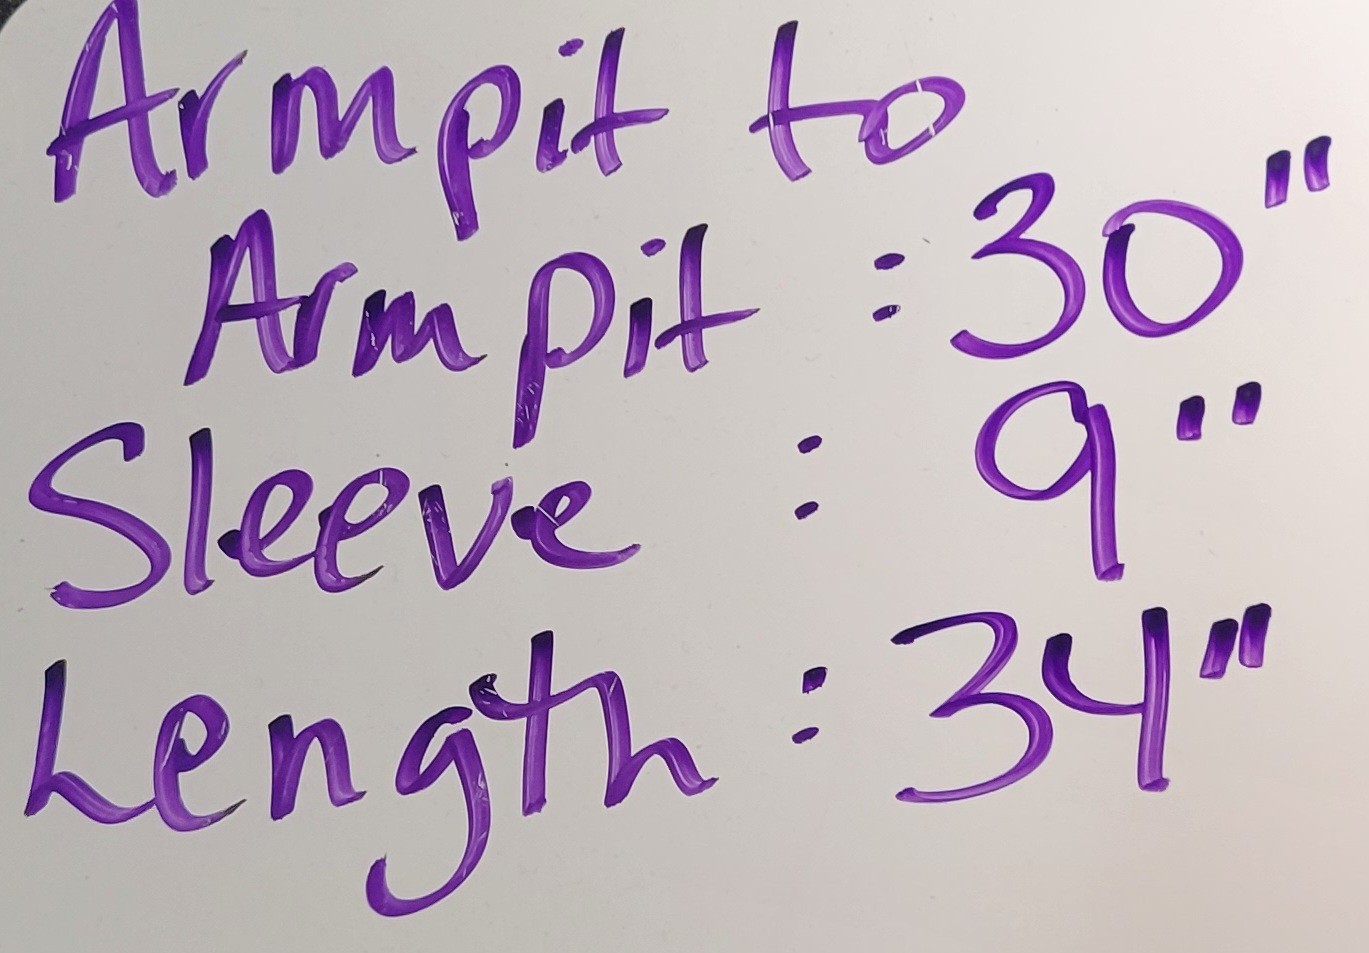 Armpit to
Armpit : 30"
Sleeve : 9"
Length : 34"